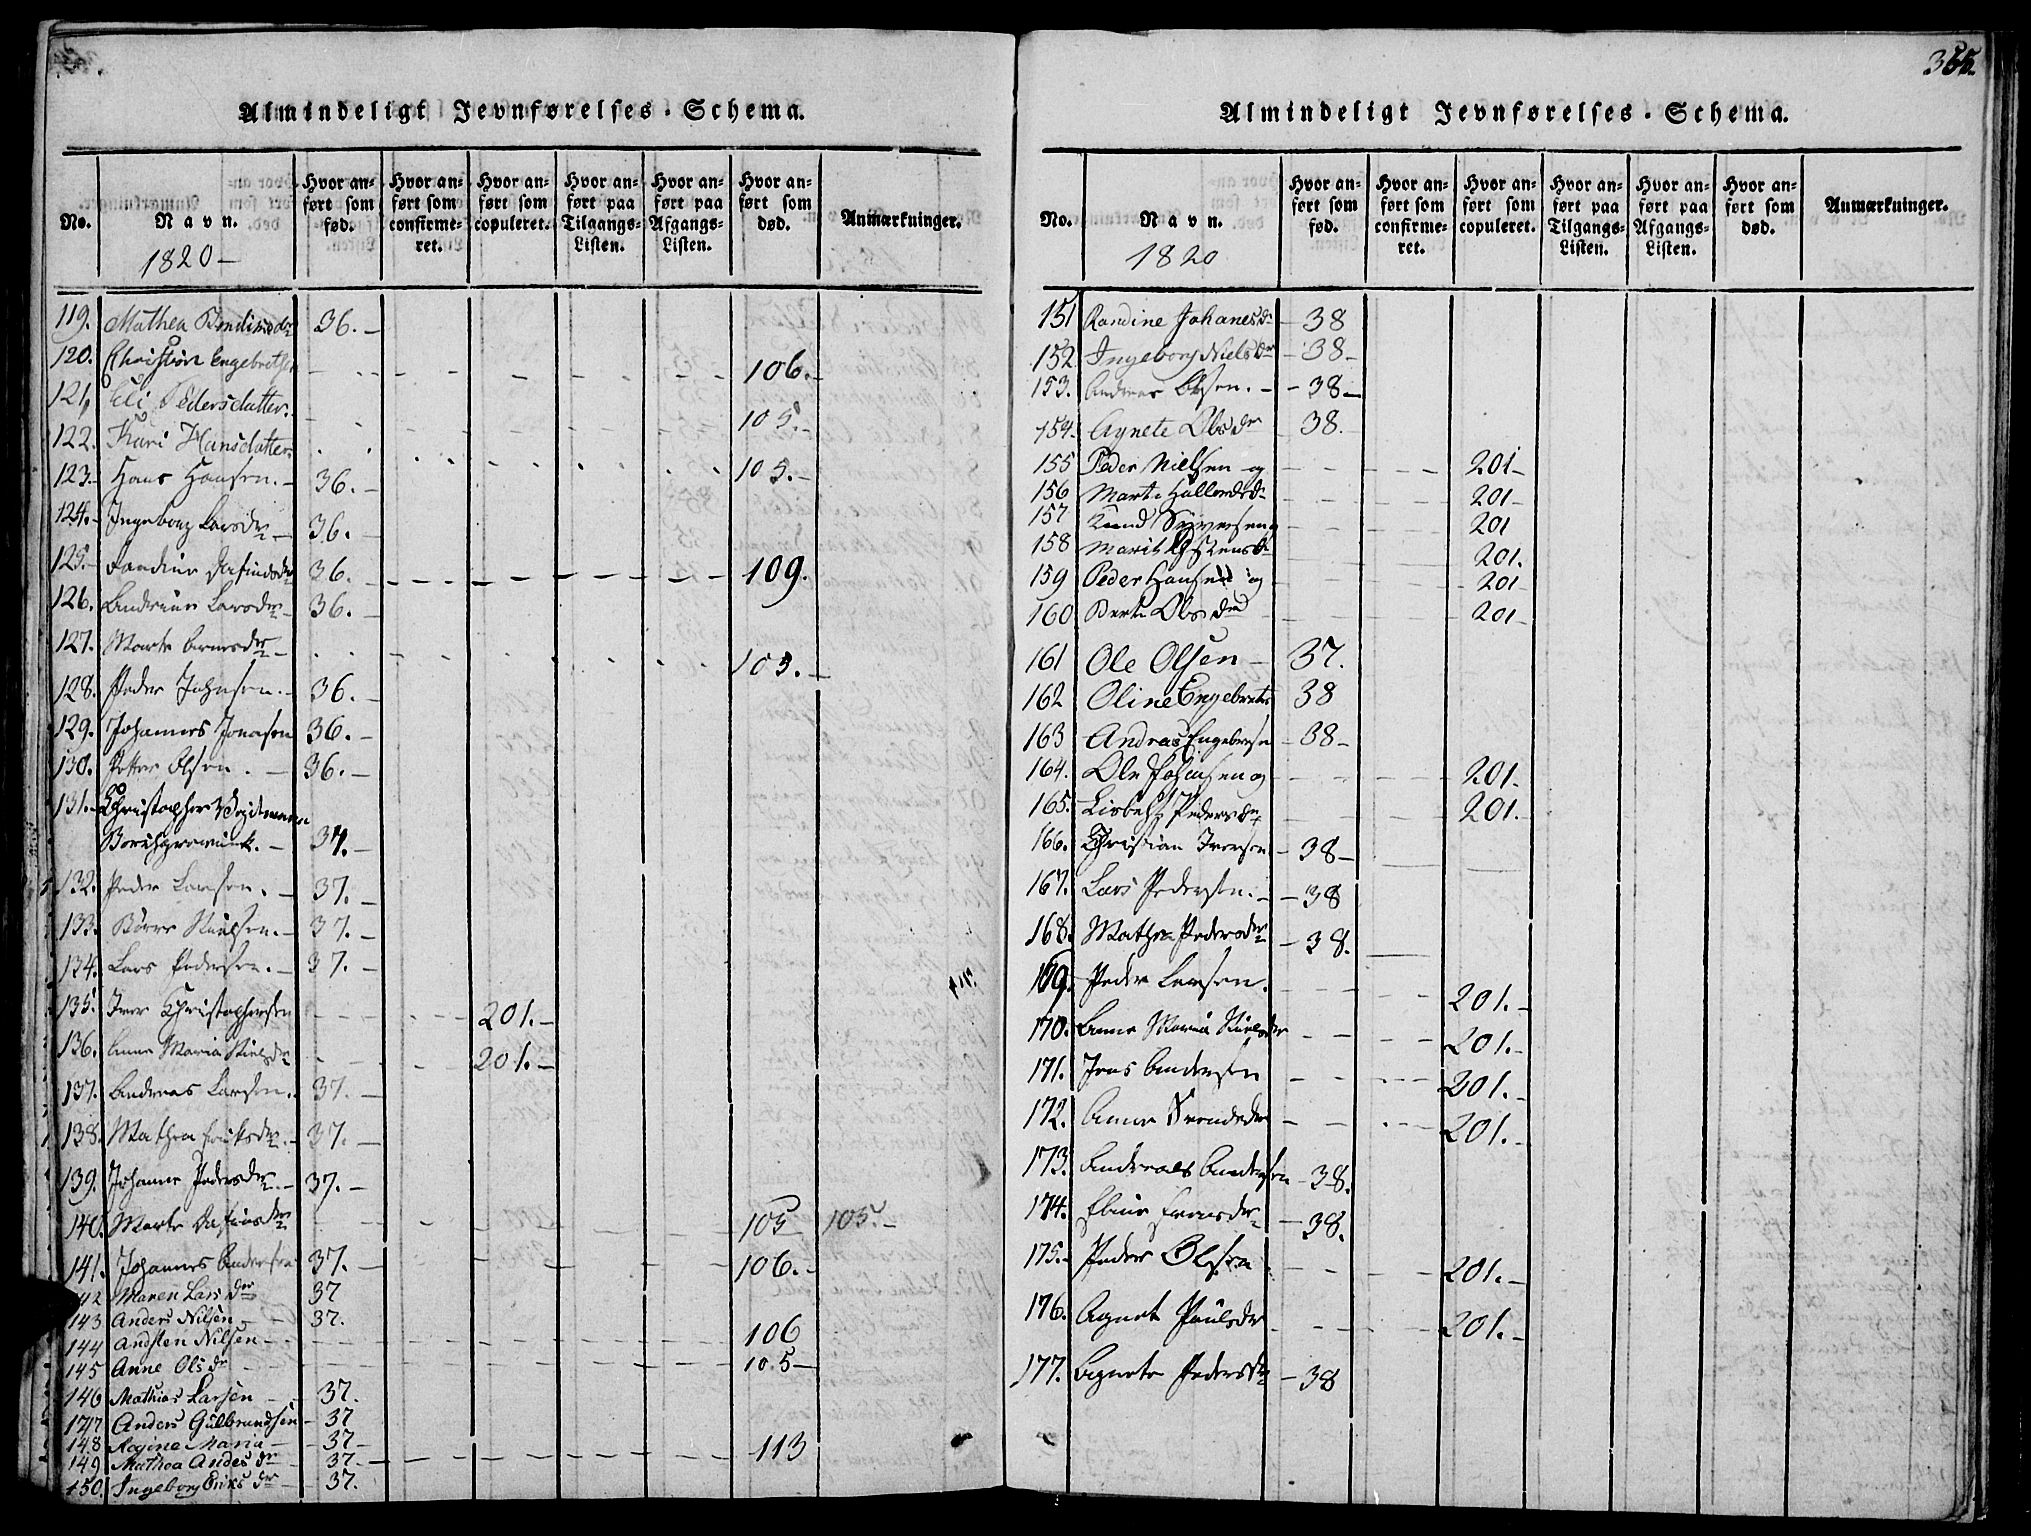 Almindeligt Jevnførelses-Schema.
No.
Navn.
Hvor anført som fød.
Hvor anført som confirmeret.
Hvor anført som copuleret.
Hvor anført paa Tilgangs-Listen.
Hvor anført paa Afgangs-Listen.
Hvor anført som død.
Anmærkninger.
1820 –
119. Mathea 36. –
120. Christian Engebretsen 106. –
121, Eli Pedersdatter. 105. –
122. Kari Hansdatter. 105. –
123. Hans Hansen. – 36. –
124. – Ingeborg Larsdr – 36. –
125. – 36. – 109.
126. Larsdr 36. –
127. Marte – 105. –
128. Peder Johnsen. – 36. –
129. Johannes Jonasen 36. –
130. Petter Olsen. – 36. –
131. – Christopher
Borchgrevink. – 37. –
132. Peder Larsen. – 37. –
133. Börre Nielsen. – 37. –
134. Lars Pedersen. – 37. –
135. Iver Christophersen 201. –
136. Anne Maria Nielsdr 201. –
137. Andreas Larsen. 37. –
138. Mathea Eriksdr. – 37. –
139. Johanne Pedersdr. – 37. –
140. Marte 105 105. –
141. Johannes Andersen 37. – 106. –
142 Maren Lars dr 37
143 Anders Nilsen – 37.
144 Andsten Nilsen – 106
145 Anne Ols dr 105 –
146 Mathias Larsen – 37.
147 Anders Gulbrandsen – 37
148 Regine Maria – 37 –
149 Mathea Andes dr – 37. – 113
150. Ingeborg Eriks dr – 37.
365.
Almindeligt Jevnførelses-Schema.
No.
Navn.
Hvor anført som fød.
Hvor anført som confirmeret.
Hvor anført som copuleret.
Hvor anført paa Tilgangs-Listen.
Hvor anført paa Afgangs-Listen.
Hvor anført som død.
Anmærkninger.
1820
151 Randine Johanesdr – 38
152 Ingeborg Nielsdr – 38 –
153. Andreas Olsen. – – 38 –
154. Agnete Olsdr 38.
155 Peder Nielsen og 201 –
156 Marte 201 –
157 Knud Syversen og 201
158 Marit 201.
159 Peder Hansen og 201
160 Berte Olsdr 201 –
161 Ole Olsen – 37.
162 Oline Engebrets 38
163 Andreas Engebresen – 38 –
164. Ole Johnsen og 201.
165. Lisbeth Pedersdr 201. –
166. Christian Iversen – 38 –
167. Lars Pedersen. – – 38
168. Mathea Pedersdr – 38.
169. Peder Larsen. 201. –
170. Anne Maria Nielsdr 201. –
171. Jens Andersen 201. –
172. Anne 201. –
173. Andreas Andersen – 38.
174. – 38.
175. – Peder Olsen 201. –
176. Agnet Paulsdr 201. –
177. Agnete Pedersdr – 38